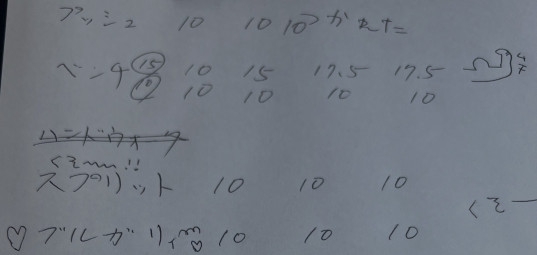 プッシュ 10 10 10 つかれた
ベンチ 15 10 15 17.5 17.5
10 10 10 10 10
ハンドウォーク
くそ〜〜!!
スプリット 10 10 10
くそー
♡ブルガリ 10 10 10